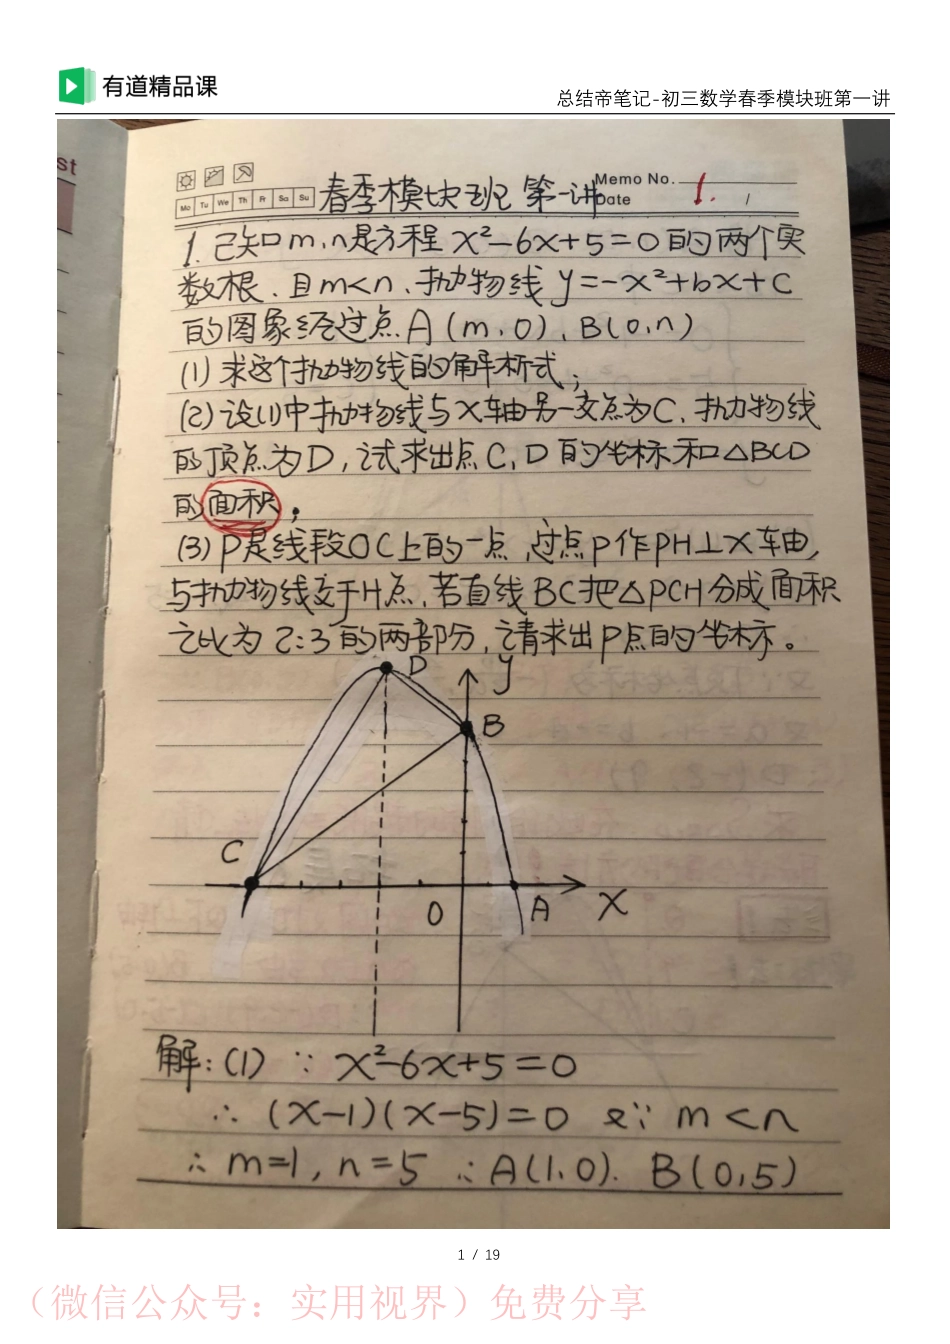 有道精品课
总结帝笔记-初三数学春季模块班第一讲
Memo No. 1.
Mo Tu We Th Fr Sa Su
春季模块班 第一讲
Date /
1.已知m,n是方程x²-6x+5=0的两个实
数根.且m<n、抛物线y=-x²+bx+c
的图象经过点A(m,0)、B(0,n)
(1)求这个抛物线的解析式;
(2)设(1)中抛物线与x轴另一交点为C.抛物线
的顶点为D,试求出点C,D的坐标和△BCD
的面积;
(3)P是线段OC上的一点,过点P作PH⊥x车由,
与抛物线交于H点,若直线BC把△PCH分成面积
之比为2:3的两部分,请求出P点的坐标。
D
y
B
C
O
A
x
解:(1)∵x²-6x+5=0
∴(x-1)(x-5)=0 又∵m<n
∴m=1,n=5 ∴A(1,0). B(0,5)
1 / 19
(微信公众号：实用视界)免费分享
st